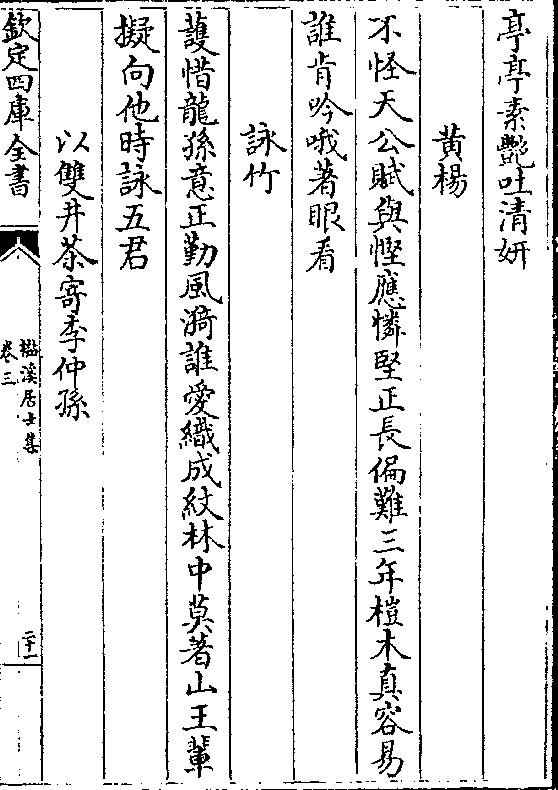 亭亭素艷吐清妍
黄楊
不怪天公賦與慳應憐堅正長偏難三年榿木真容易
誰肯吟哦著眼看
詠竹
䕶惜龍孫意正勤風漪誰愛織成紋林中莫著山王輩
擬向他時詠五君
以雙井茶寄李仲孫
欽定四庫全書
樾溪居士集
卷三
二十一